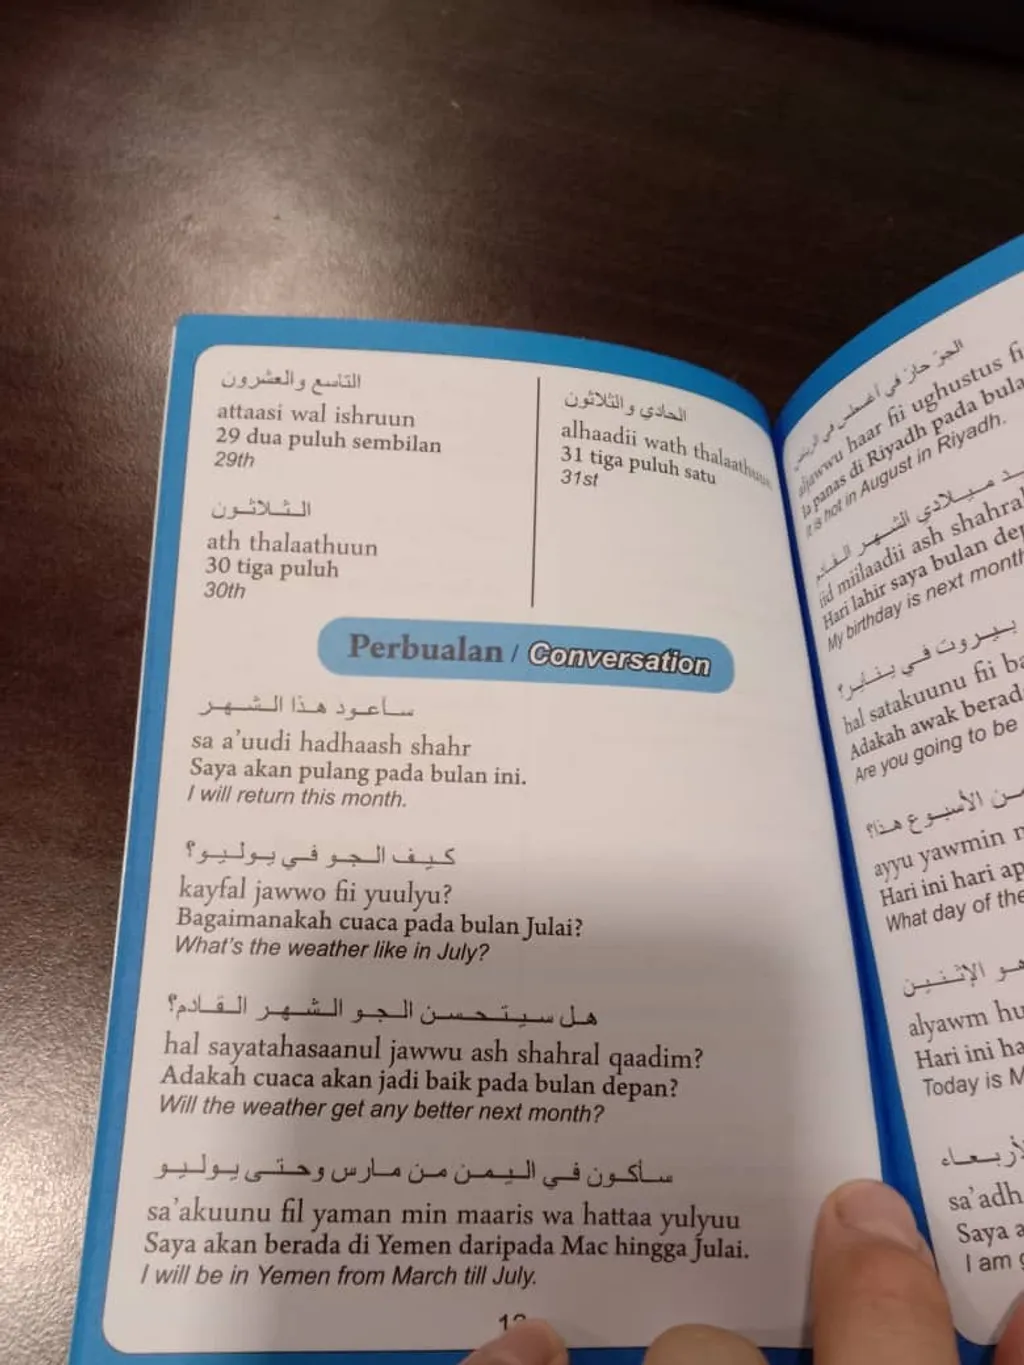 التاسع والعشرون
attaasi wal ishruun
29 dua puluh sembilan
29th
الـثـلاثـون
ath thalaathuun
30 tiga puluh
30th
الحادي والثلاثون
alhaadii wath thalaathuun
31 tiga puluh satu
31st
Perbualan / Conversation
سـاعـود هـذا الـشـهـر
sa a'uudi hadhaash shahr
Saya akan pulang pada bulan ini.
I will return this month.
كـيـف الـجـو فـي يـولـيـو؟
kayfal jawwo fii yuulyu?
Bagaimanakah cuaca pada bulan Julai?
What's the weather like in July?
هـل سـيـتـحـسـن الـجـو الـشـهـر الـقـادم؟
hal sayatahasaanul jawwu ash shahral qaadim?
Adakah cuaca akan jadi baik pada bulan depan?
Will the weather get any better next month?
سـأكـون فـي الـيـمـن مـن مـارس وحـتـى يـولـيـو
sa'akuunu fil yaman min maaris wa hattaa yulyuu
Saya akan berada di Yemen daripada Mac hingga Julai.
I will be in Yemen from March till July.
الجوّ حارّ في أغسطس في الرياض
aljawwu haar fii ughustus
panas di Riyadh pada
It is hot in August in Riyadh.
مـيـلادي الـشـهـر الـقـادم
iid miilaadii ash shahral
Hari lahir saya bulan
My birthday is next month
بـيـروت فـي يـنـايـر؟
hal satakuunu fii
Adakah awak
Are you going to be
مـن الأسـبـوع هـذا؟
ayyu yawmin
Hari ini hari
What day of the
هـو الإثـنـيـن
alyawm
Hari ini
Today is
sa'adh
Saya
I am